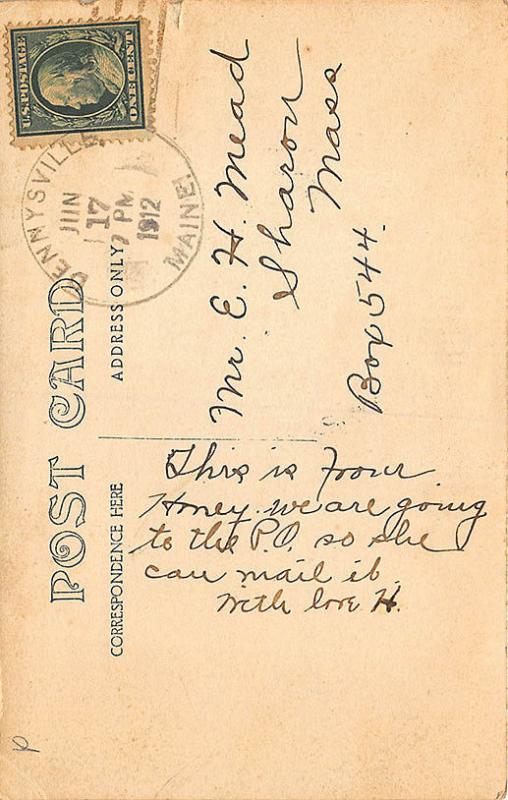 U.S. POSTAGE
ONE CENT
DENNYSVILLE
JUN
17
7 PM
1912
MAINE.
POST CARD
ADDRESS ONLY
Mr. E. H. Mead
Sharon
Mass
Box 544.
CORRESPONDENCE HERE
This is from
Honey. we are going
to the P.O. so she
can mail it.
With love H.